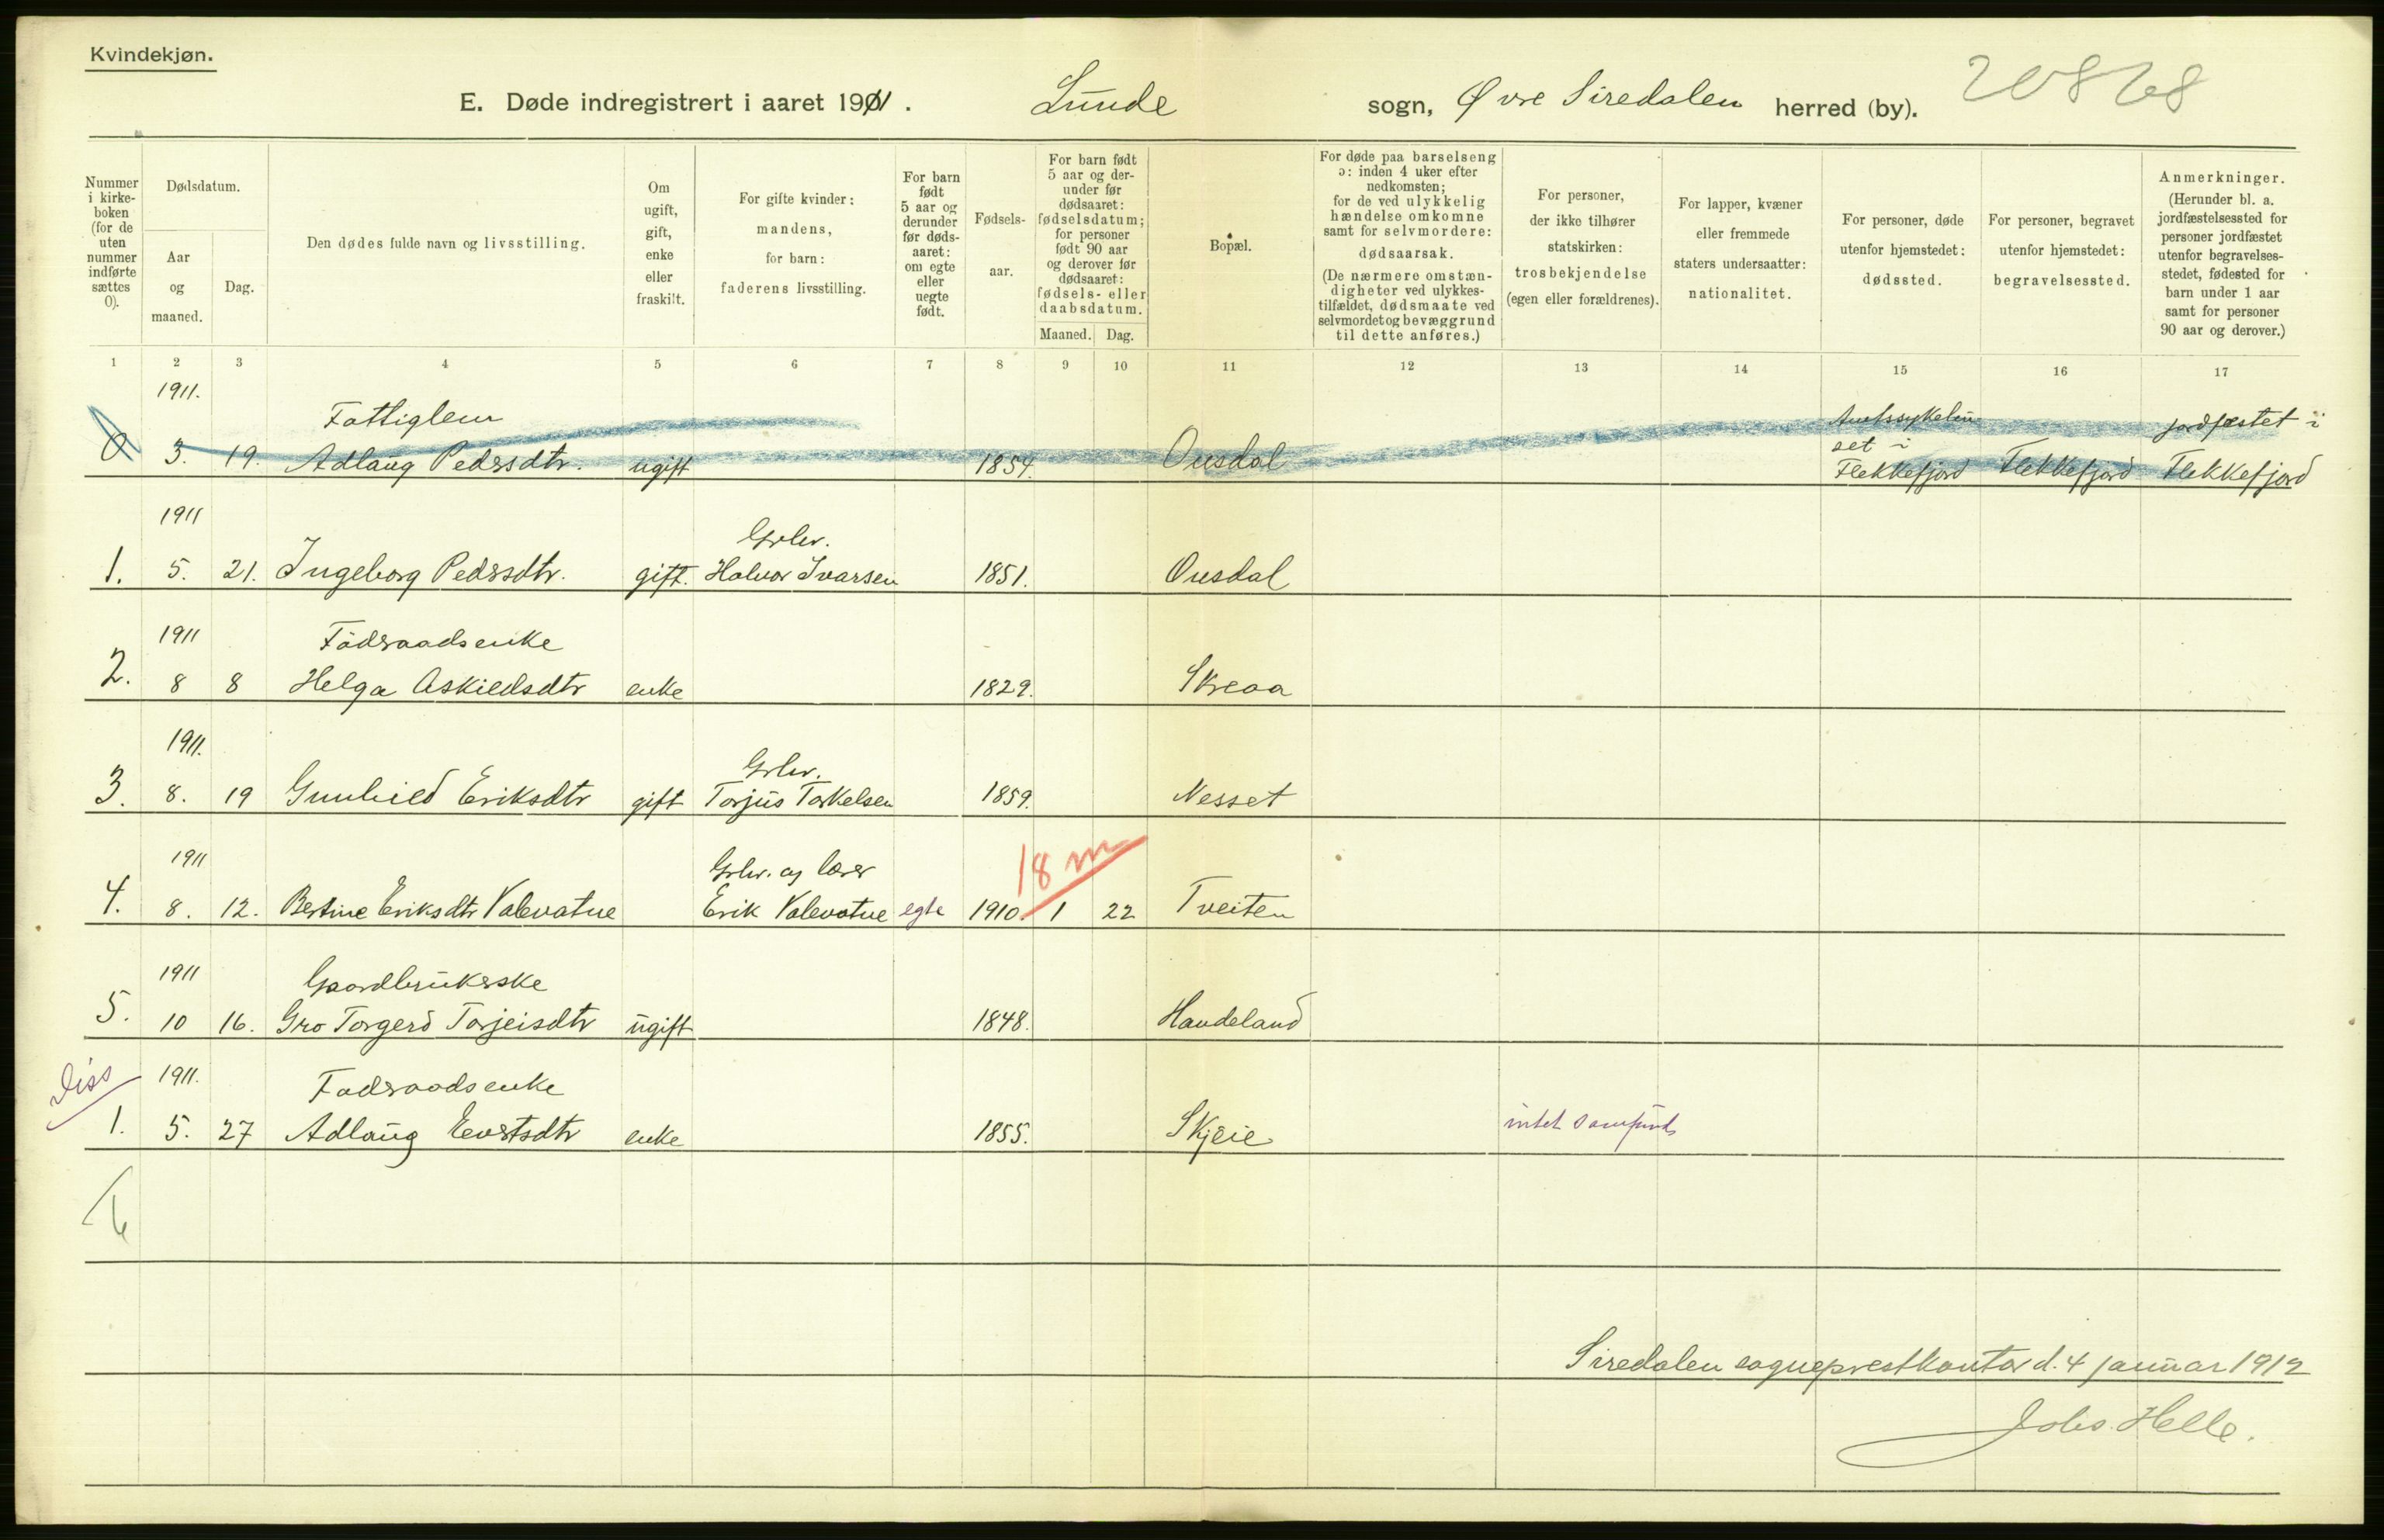 Kvindekjøn.
E. Døde indregistrert i aaret 1911. Lunde sogn, Øvre Siredalen herred (by). 20868
Nummer i kirke-boken (for de uten nummer indførte sættes 0).
Dødsdatum.
Aar og maaned.
Dag.
Den dødes fulde navn og livsstilling.
Om ugift, gift, enke eller fraskilt.
For gifte kvinder: mandens, for barn: faderens livsstilling.
For barn født 5 aar og derunder før døds-aaret: om egte eller uegte født.
Fødsels-aar.
For barn født 5 aar og der-under før dødsaaret: fødselsdatum; for personer født 90 aar og derover før dødsaaret: fødsels- eller daabsdatum.
Maaned. Dag.
Bopæl.
For døde paa barselseng ɔ: inden 4 uker efter nedkomsten; for de ved ulykkelig hændelse omkomne samt for selvmordere: dødsaarsak. (De nærmere omstæn-digheter ved ulykkes-tilfældet, dødsmaate ved selvmordet og bevæggrund til dette anføres.)
For personer, der ikke tilhører statskirken: trosbekjendelse (egen eller forældrenes).
For lapper, kvæner eller fremmede staters undersaatter: nationalitet.
For personer, døde utenfor hjemstedet: dødssted.
For personer, begravet utenfor hjemstedet: begravelsessted.
Anmerkninger. (Herunder bl. a. jordfæstelsessted for personer jordfæstet utenfor begravelses-stedet, fødested for barn under 1 aar samt for personer 90 aar og derover.)
1 2 3 4 5 6 7 8 9 10 11 12 13 14 15 16 17
1911. Fattiglem Amtssykehu jordfæstet i
set i
0 3. 19. Adlaug Pedersdtr. ugift 1854. Ousdal Flekkefjord Flekkefjord Flekkefjord
1911 Grbr.
1. 5. 21. Ingeborg Pedersdtr. gift. Halvor Ivarsen 1851. Ousdal
1911 Föderaadsenke
2. 8 8 Helga Askieldsdtr enke 1829. Skreaa
1911. Grbr.
3. 8. 19 Gunhild Eriksdtr gift Torjus Torkelsen 1859. Nesset
1911 Grbr. og lærer 18 m
4. 8. 12. Bertine Eriksdtr Valevatne Erik Valevatne egte 1910. 1 22 Tveiten
1911 Gaardbrukerske
5. 10 16. Gro Torgerd Torjeisdtr ugift 1848. Haudeland
Diss 1911. Foderaadsenke
1. 5. 27 Adlaug Evertsdtr enke 1855. Skjeie intet samfund
6
Siredalen sogneprestkontor d. 4 januar 1912
Johs. Helle.